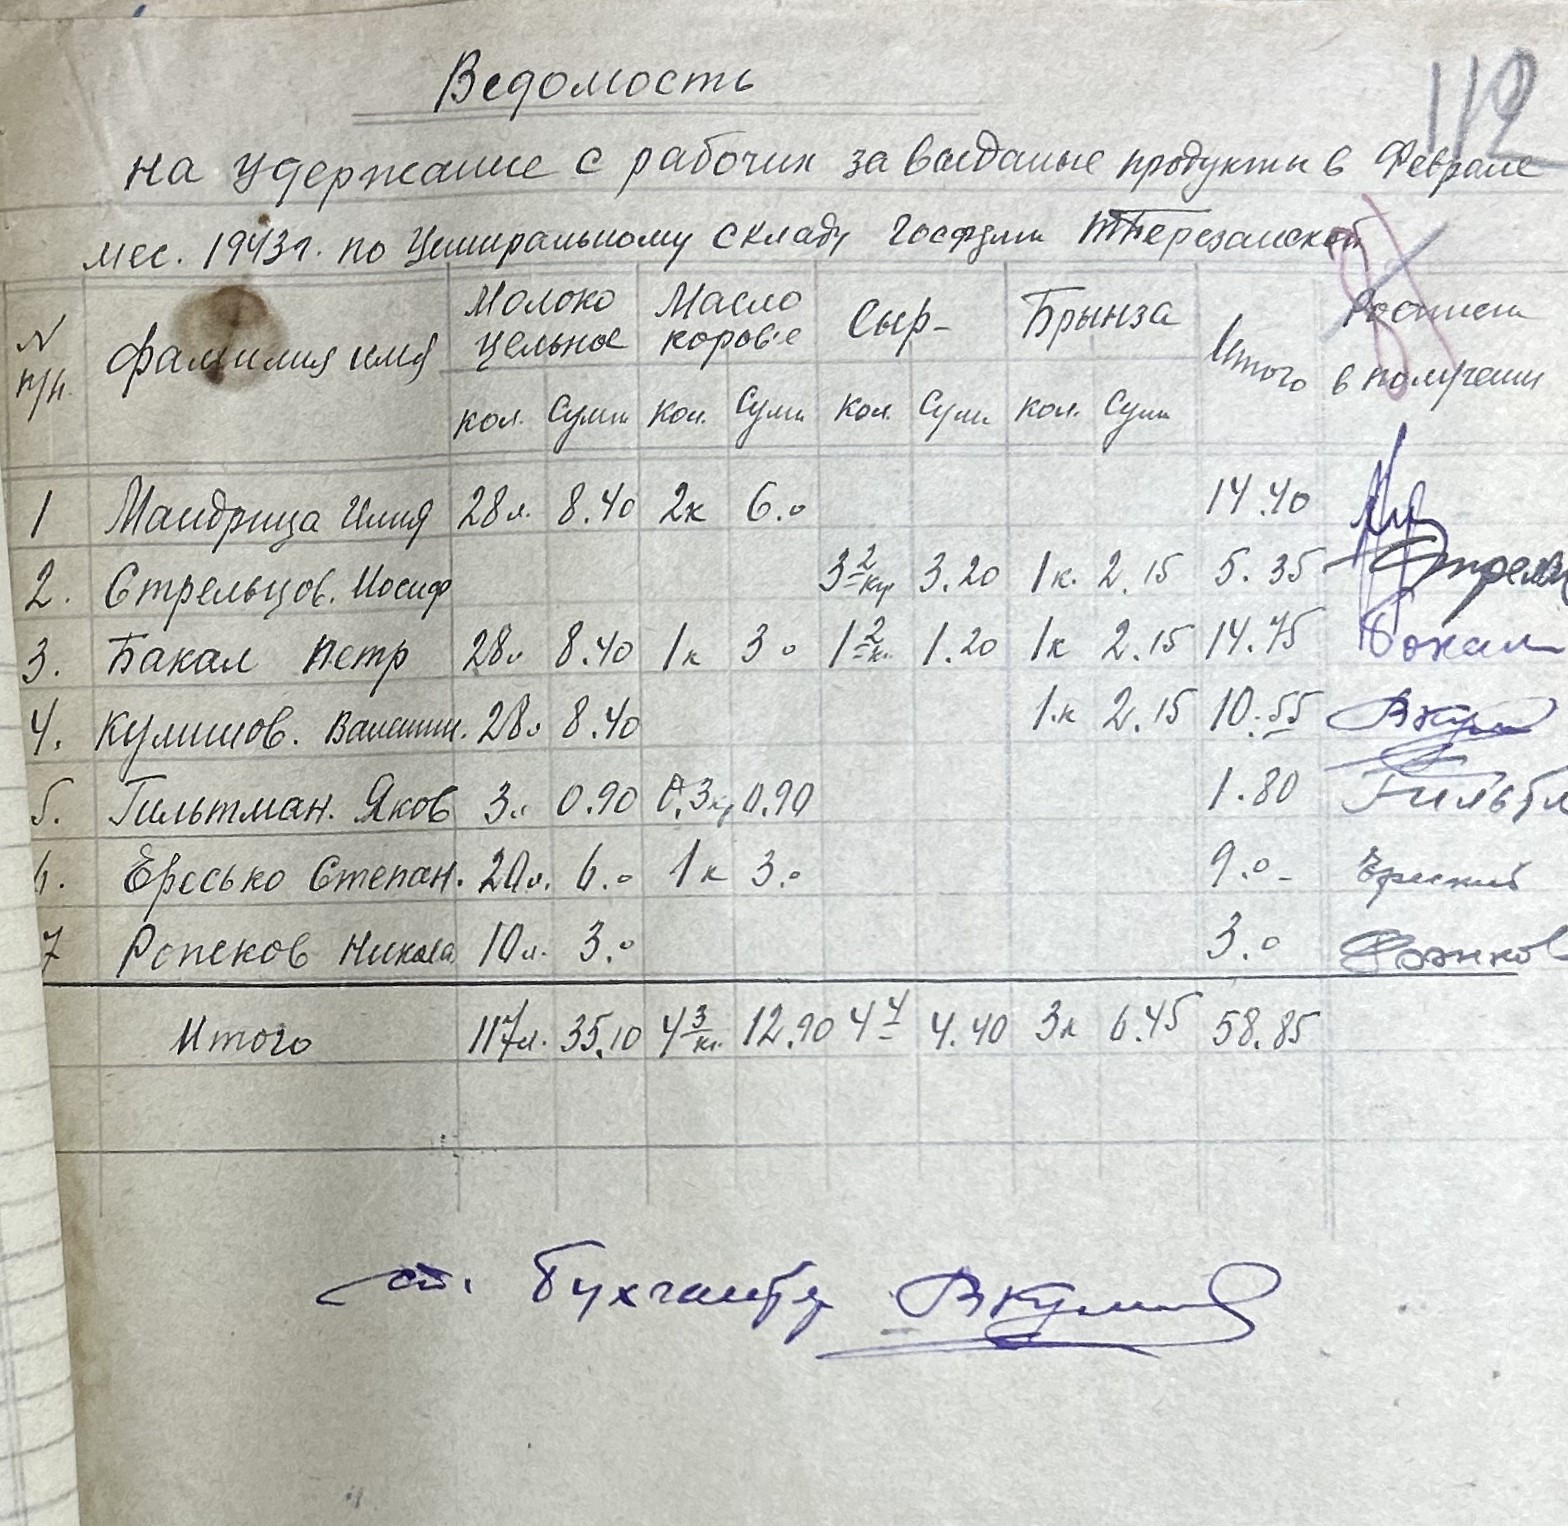 112
Ведомость
на удержание с рабочих за выданые продукты в Феврале
мес. 1943г. по Центральному складу госфермы Березанской
N п/п. Фамилия имя Молоко цельное Масло коровье Сыр- Брынза Итого Росписи в получении
кол. Сумм кол. Сумм кол. Сумм кол. Сумм
1 Мандрица Илия 28л. 8.40 2к 6.0 14.40
2. Стрельцов. Иосиф 3 2 кг 3.20 1к. 2.15 5.35 Стрельц
3. Бакал Петр 28л 8.40 1к 3 0 1 2 к. 1.20 1к 2.15 14.75 Бокал
4. Кулишов. Валентин. 28л 8.40 1.к 2.15 10.55 ВКул
5. Гильтман. Яков 3л 0.90 0,3кг 0.90 1.80
6. Ересько Степан. 20л. 6.0 1к 3.0 9.0-
7 Ропеков Никола 10л. 3.0 3.0
Итого 117л. 35.10 4 3 кг. 12.90 4 4 4.40 3к 6.45 58.85
ст. Бухгалтер ВКулиш